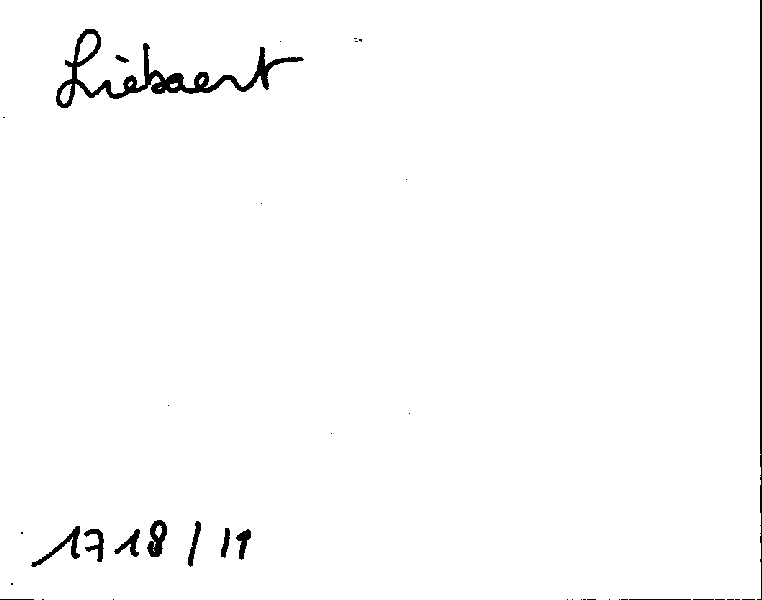 Liebaert
1718/11